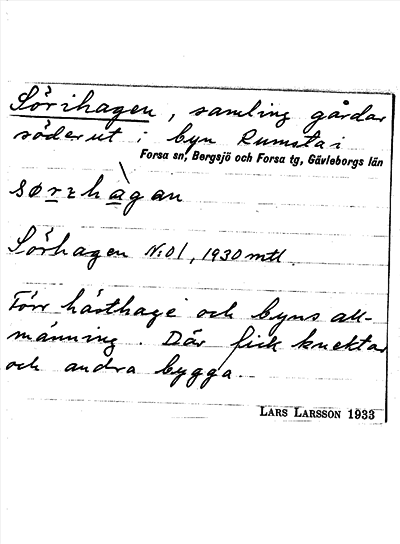 Sörihagen, samling gårdar
söderut i byn Rumsta i
Forsa sn, Bergsjö och Forsa tg, Gävleborgs län
sørɪhàgan
Sörhagen N:o 1, 1930 mtl.
Förr hästhage och byns all-
männing. Där fick knektar
och andra bygga.
LARS LARSSON 1933